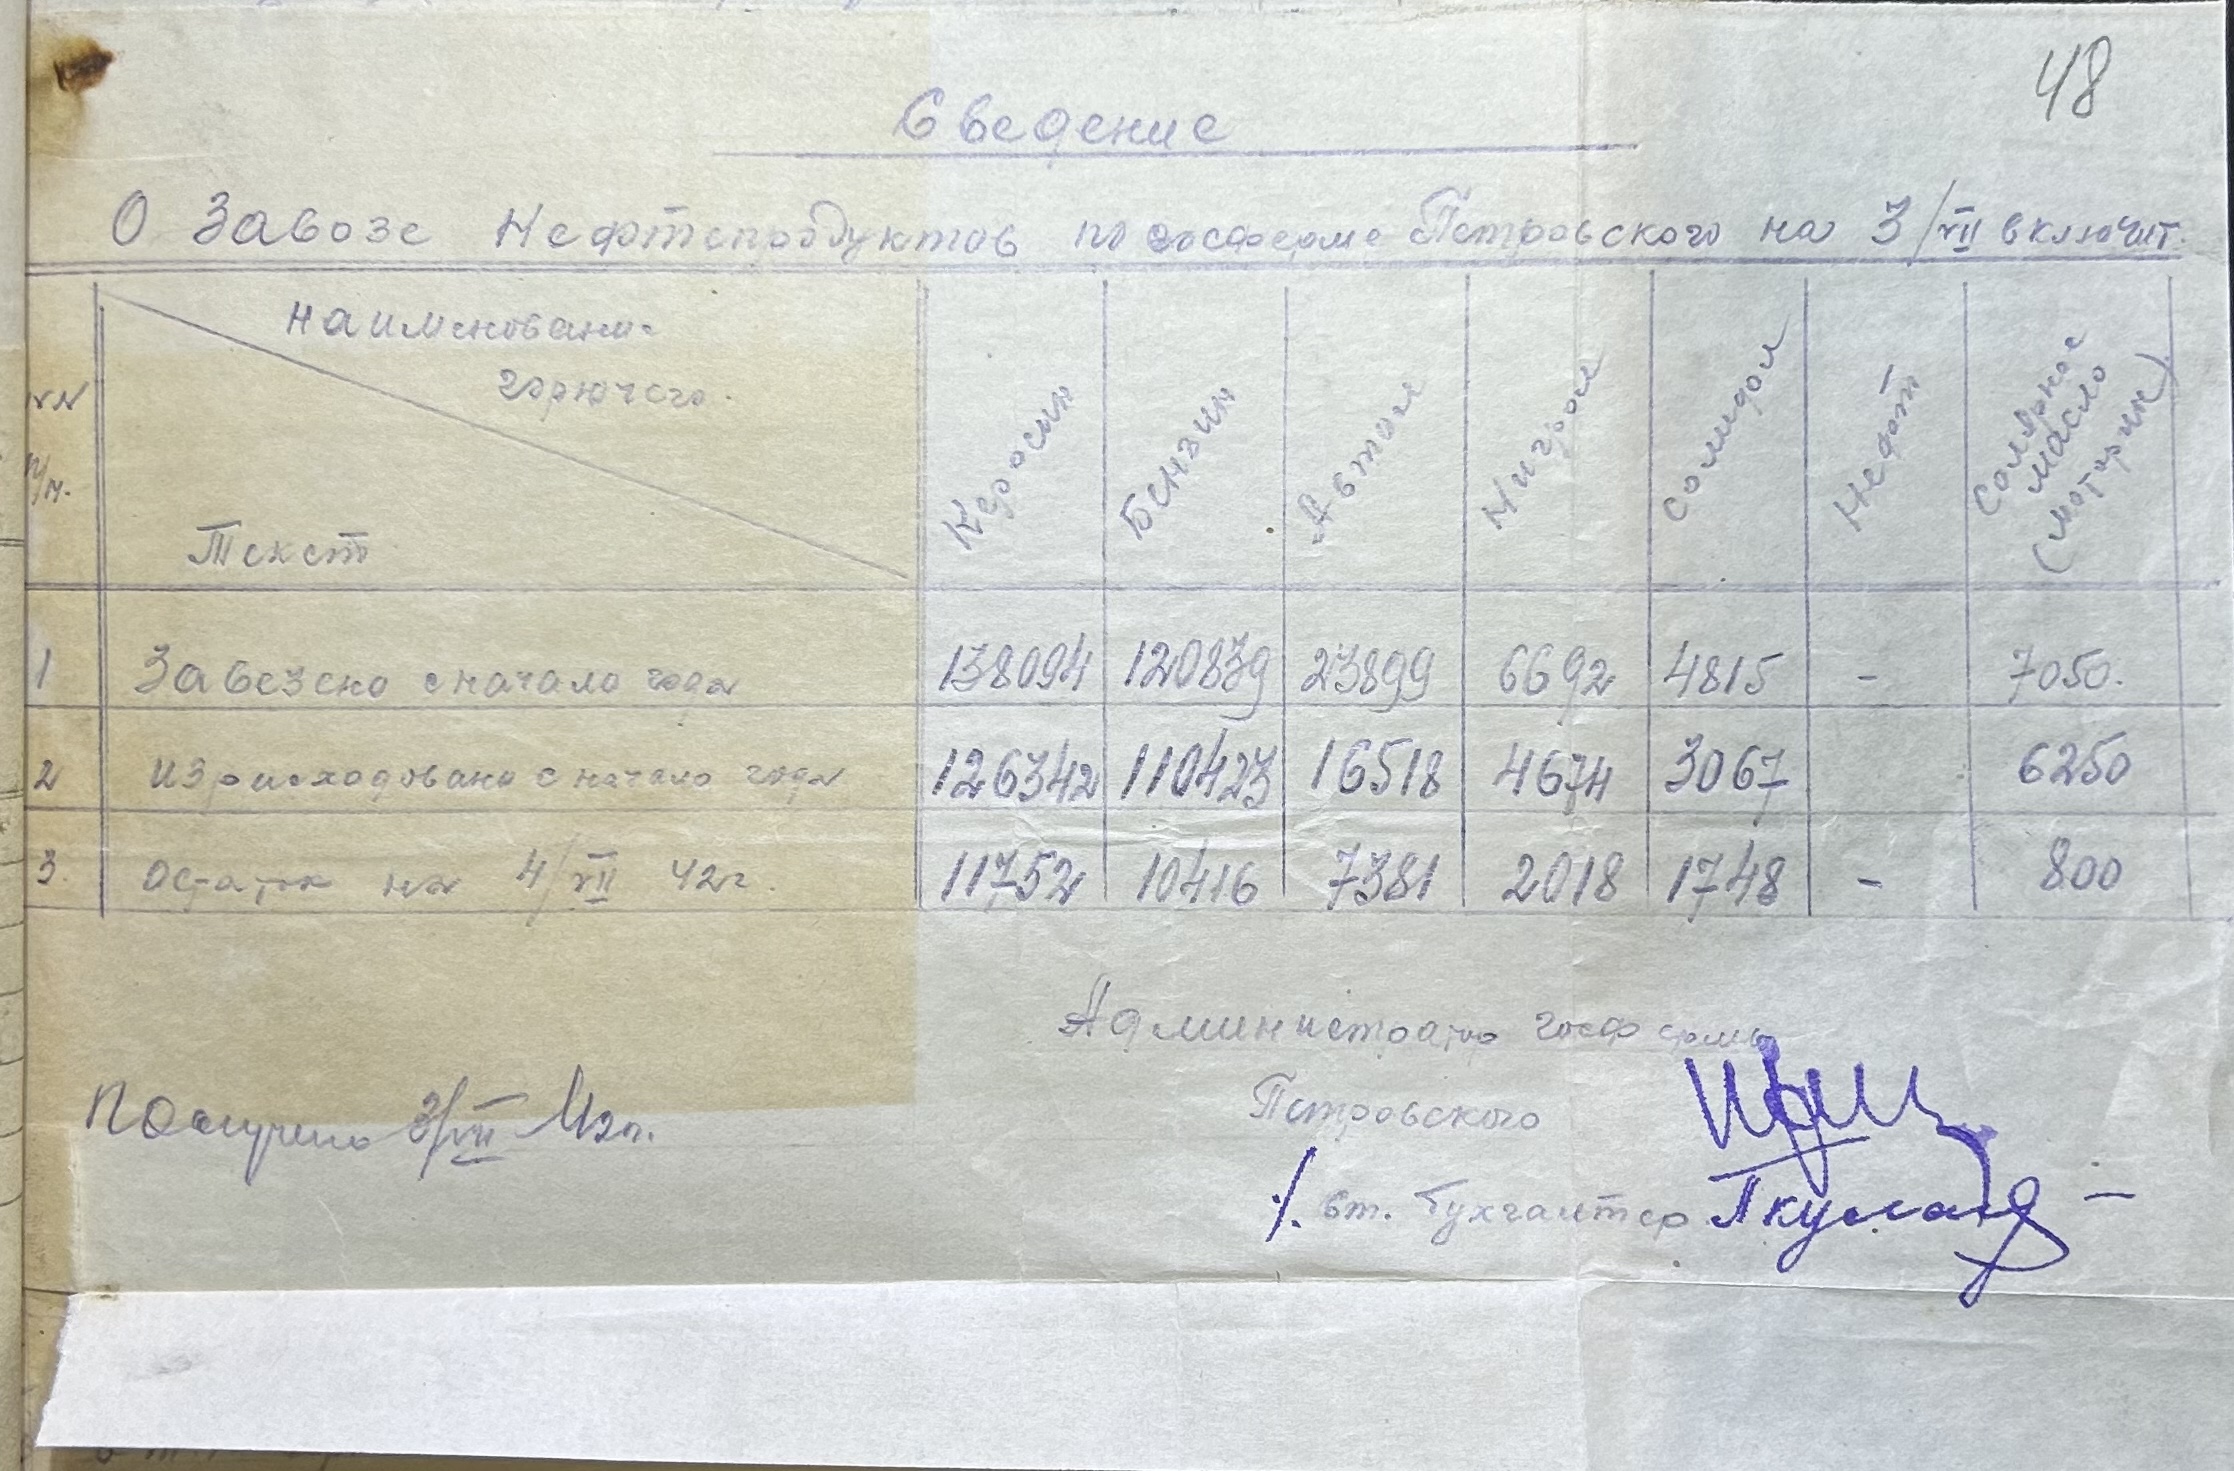 48
Сведение
О Завозе Нефтепродуктов по госферме Петровского на 3/VII включит.
NN п/п.
Наименовани-
горючего.
Текст
Керосин
Бензин
Автол
Нигрол
Солидол
Нефт
Солярное масло (моторин)
1 Завезено с начало года 138094 120839 23899 6692 4815 - 7050.
2 Израсходовано с начало года 126342 110423 16518 4674 3067 6250
3. Остаток на 4/VII 42г. 11752 10416 7381 2018 1748 - 800
Администратор госфермы
Петровского
Получено 3/VII
/. вт. бухгалтер